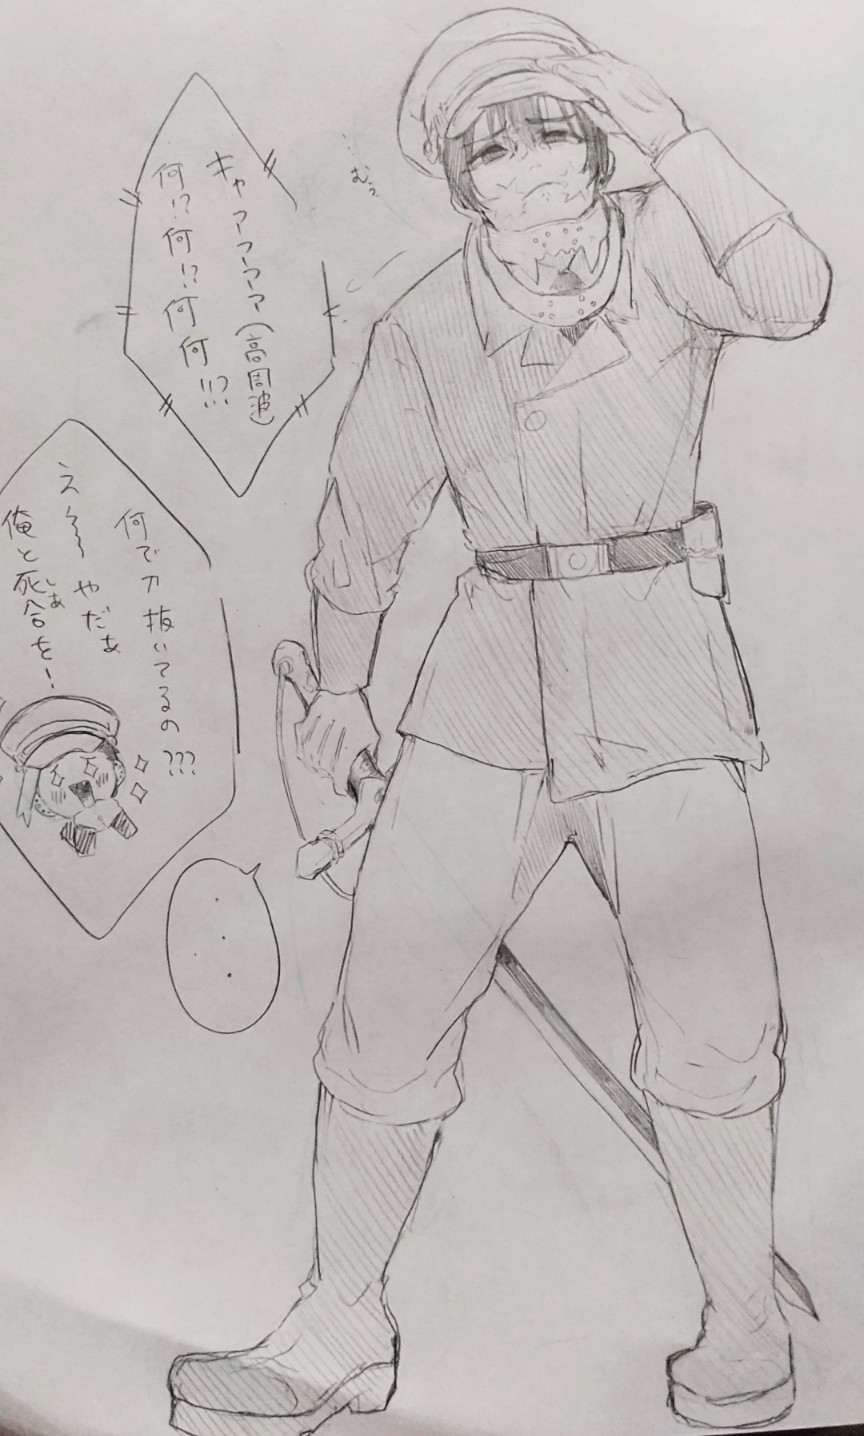 キャァーーーァァ(高周波)
何!?何!?何何!!?
…むぅ
何で刀抜いてるの???
え〜〜やだぁ
俺と死合を!
しあ
...